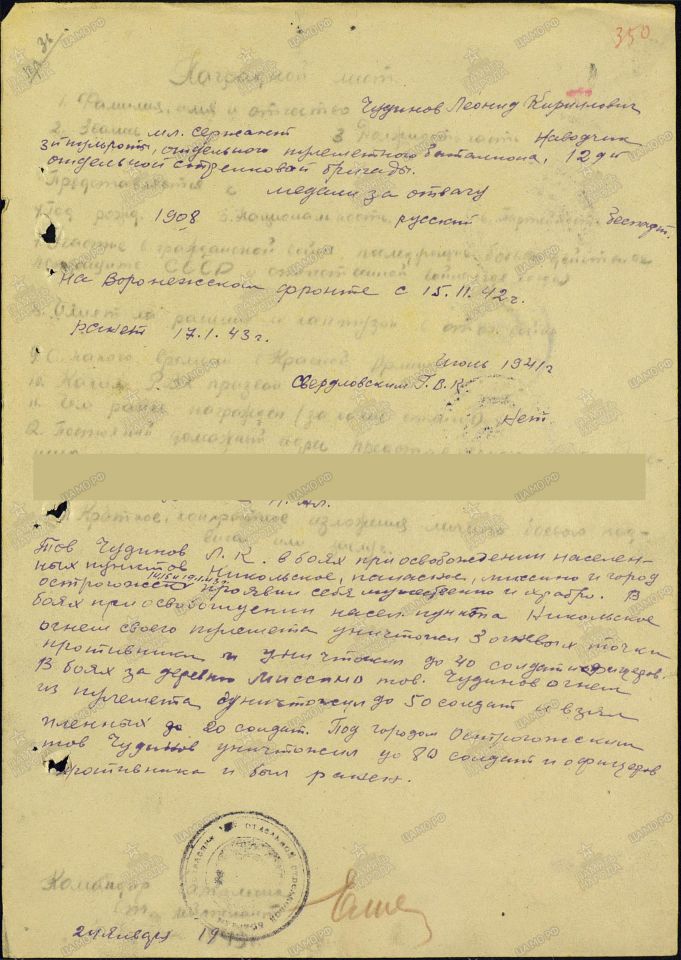 350
Наградной лист
1. Фамилия, имя и отчество Чудинов Леонид Кириллович
2. Звание мл. сержант 3. Должность, часть Наводчик
отдельного пулеметного батальона, 12 
отдельной стрелковой бригады.
Представляется к
медали за отвагу
4. Год рожд. 1908 5. Национальность русский 6. Партийность беспарт.
7. Участие в гражданской войне, последующих боевых действиях
по защите СССР и отечественной войне
на Воронежском фронте с 15.11.42г.
8. Имеет ли ранения и контузии в отеч. войне
ранен 17.1.43г.
9. С какого времени в Красной Армии июнь 1941г
10. Каким РВК призван Свердловским Г.В.К.
11. Чем ранее награжден (за какие отличия) Нет.
12. Постоянный домашний адрес
Краткое, конкретное изложение личного боевого под-
вига или заслуг.
Тов Чудинов Л.К. в боях при освобождении населен-
ных пунктов Никольское, миссино и город
острогожск проявил себя мужественно и храбро. В
боях при освобождении насел. пункта Никольское
огнем своего пулемета уничтожил 3 огневых точки
противника и уничтожил до 40 солдат и офицеров.
В боях за деревню Миссино тов. Чудинов огнем
из пулемета уничтожил до 50 солдат и взял
пленных до 20 солдат. Под городом Острогожским
тов Чудинов уничтожил до 80 солдат и офицеров
противника и был ранен.
Командир
января 19
ЦАМО.РФ